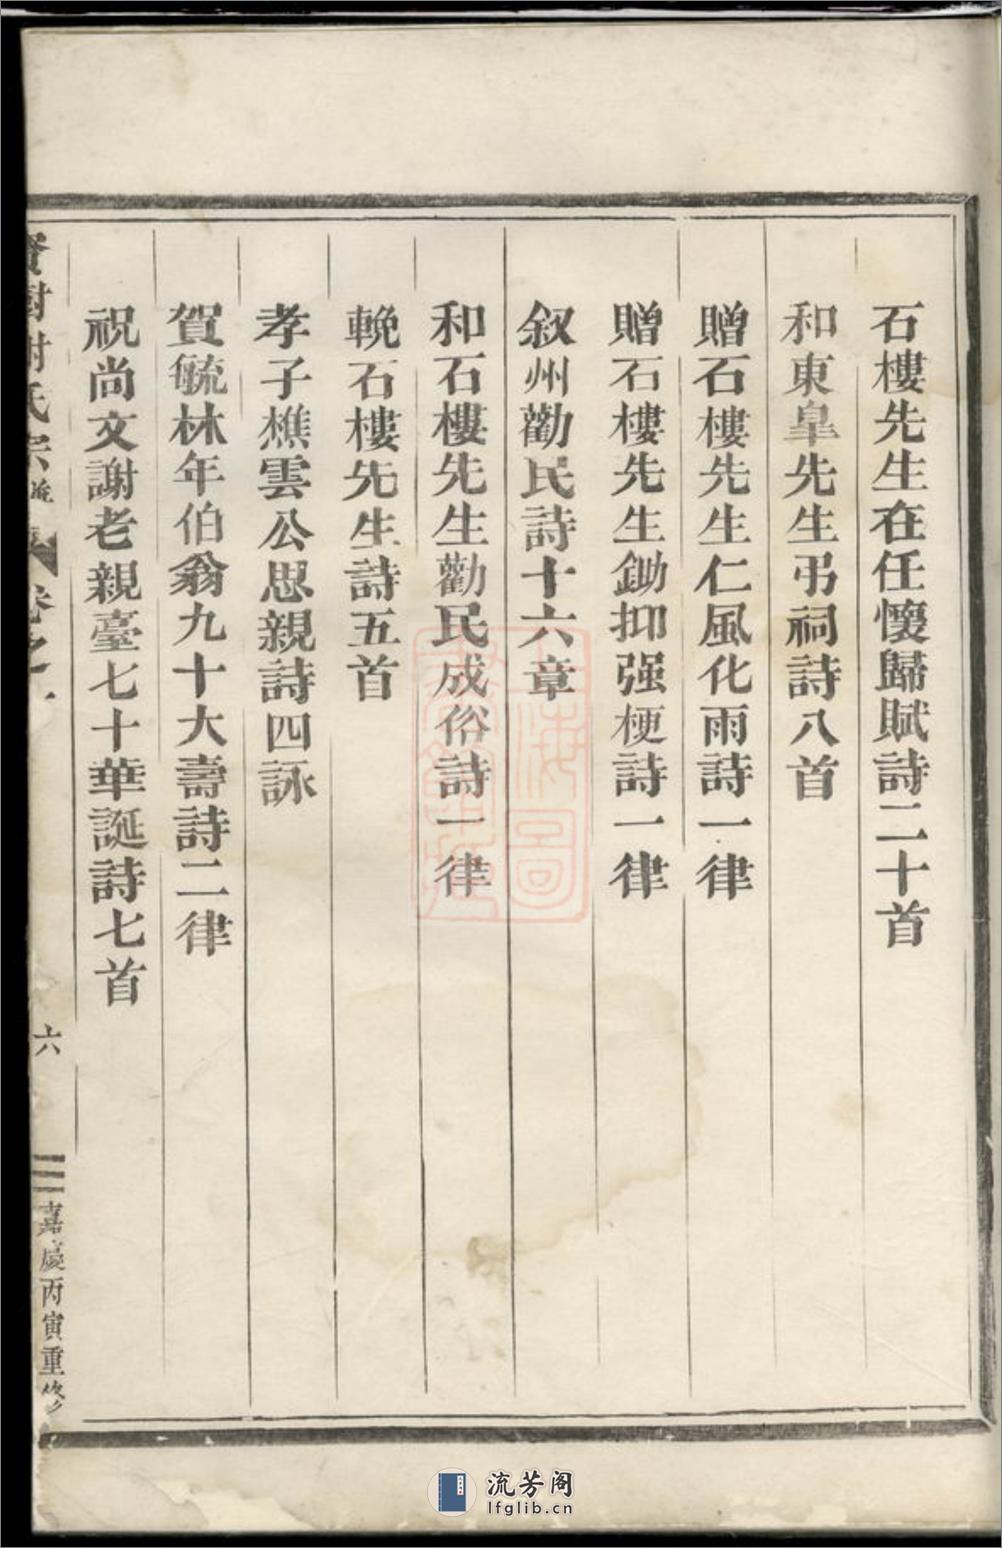 石樓先生在任懷歸賦詩二十首
和東皐先生弔祠詩八首
贈石樓先生仁風化雨詩一律
贈石樓先生鋤抑强梗詩一律
叙州勸民詩十六章
和石樓先生勸民成俗詩一律
輓石樓先生詩五首
孝子樵雲公思親詩四詠
賀毓林年伯翁九十大壽詩二律
祝尚文謝老親臺七十華誕詩七首
氏宗 卷之一
六
嘉慶丙寅重修
上海圖
流芳阁
lfglib.cn